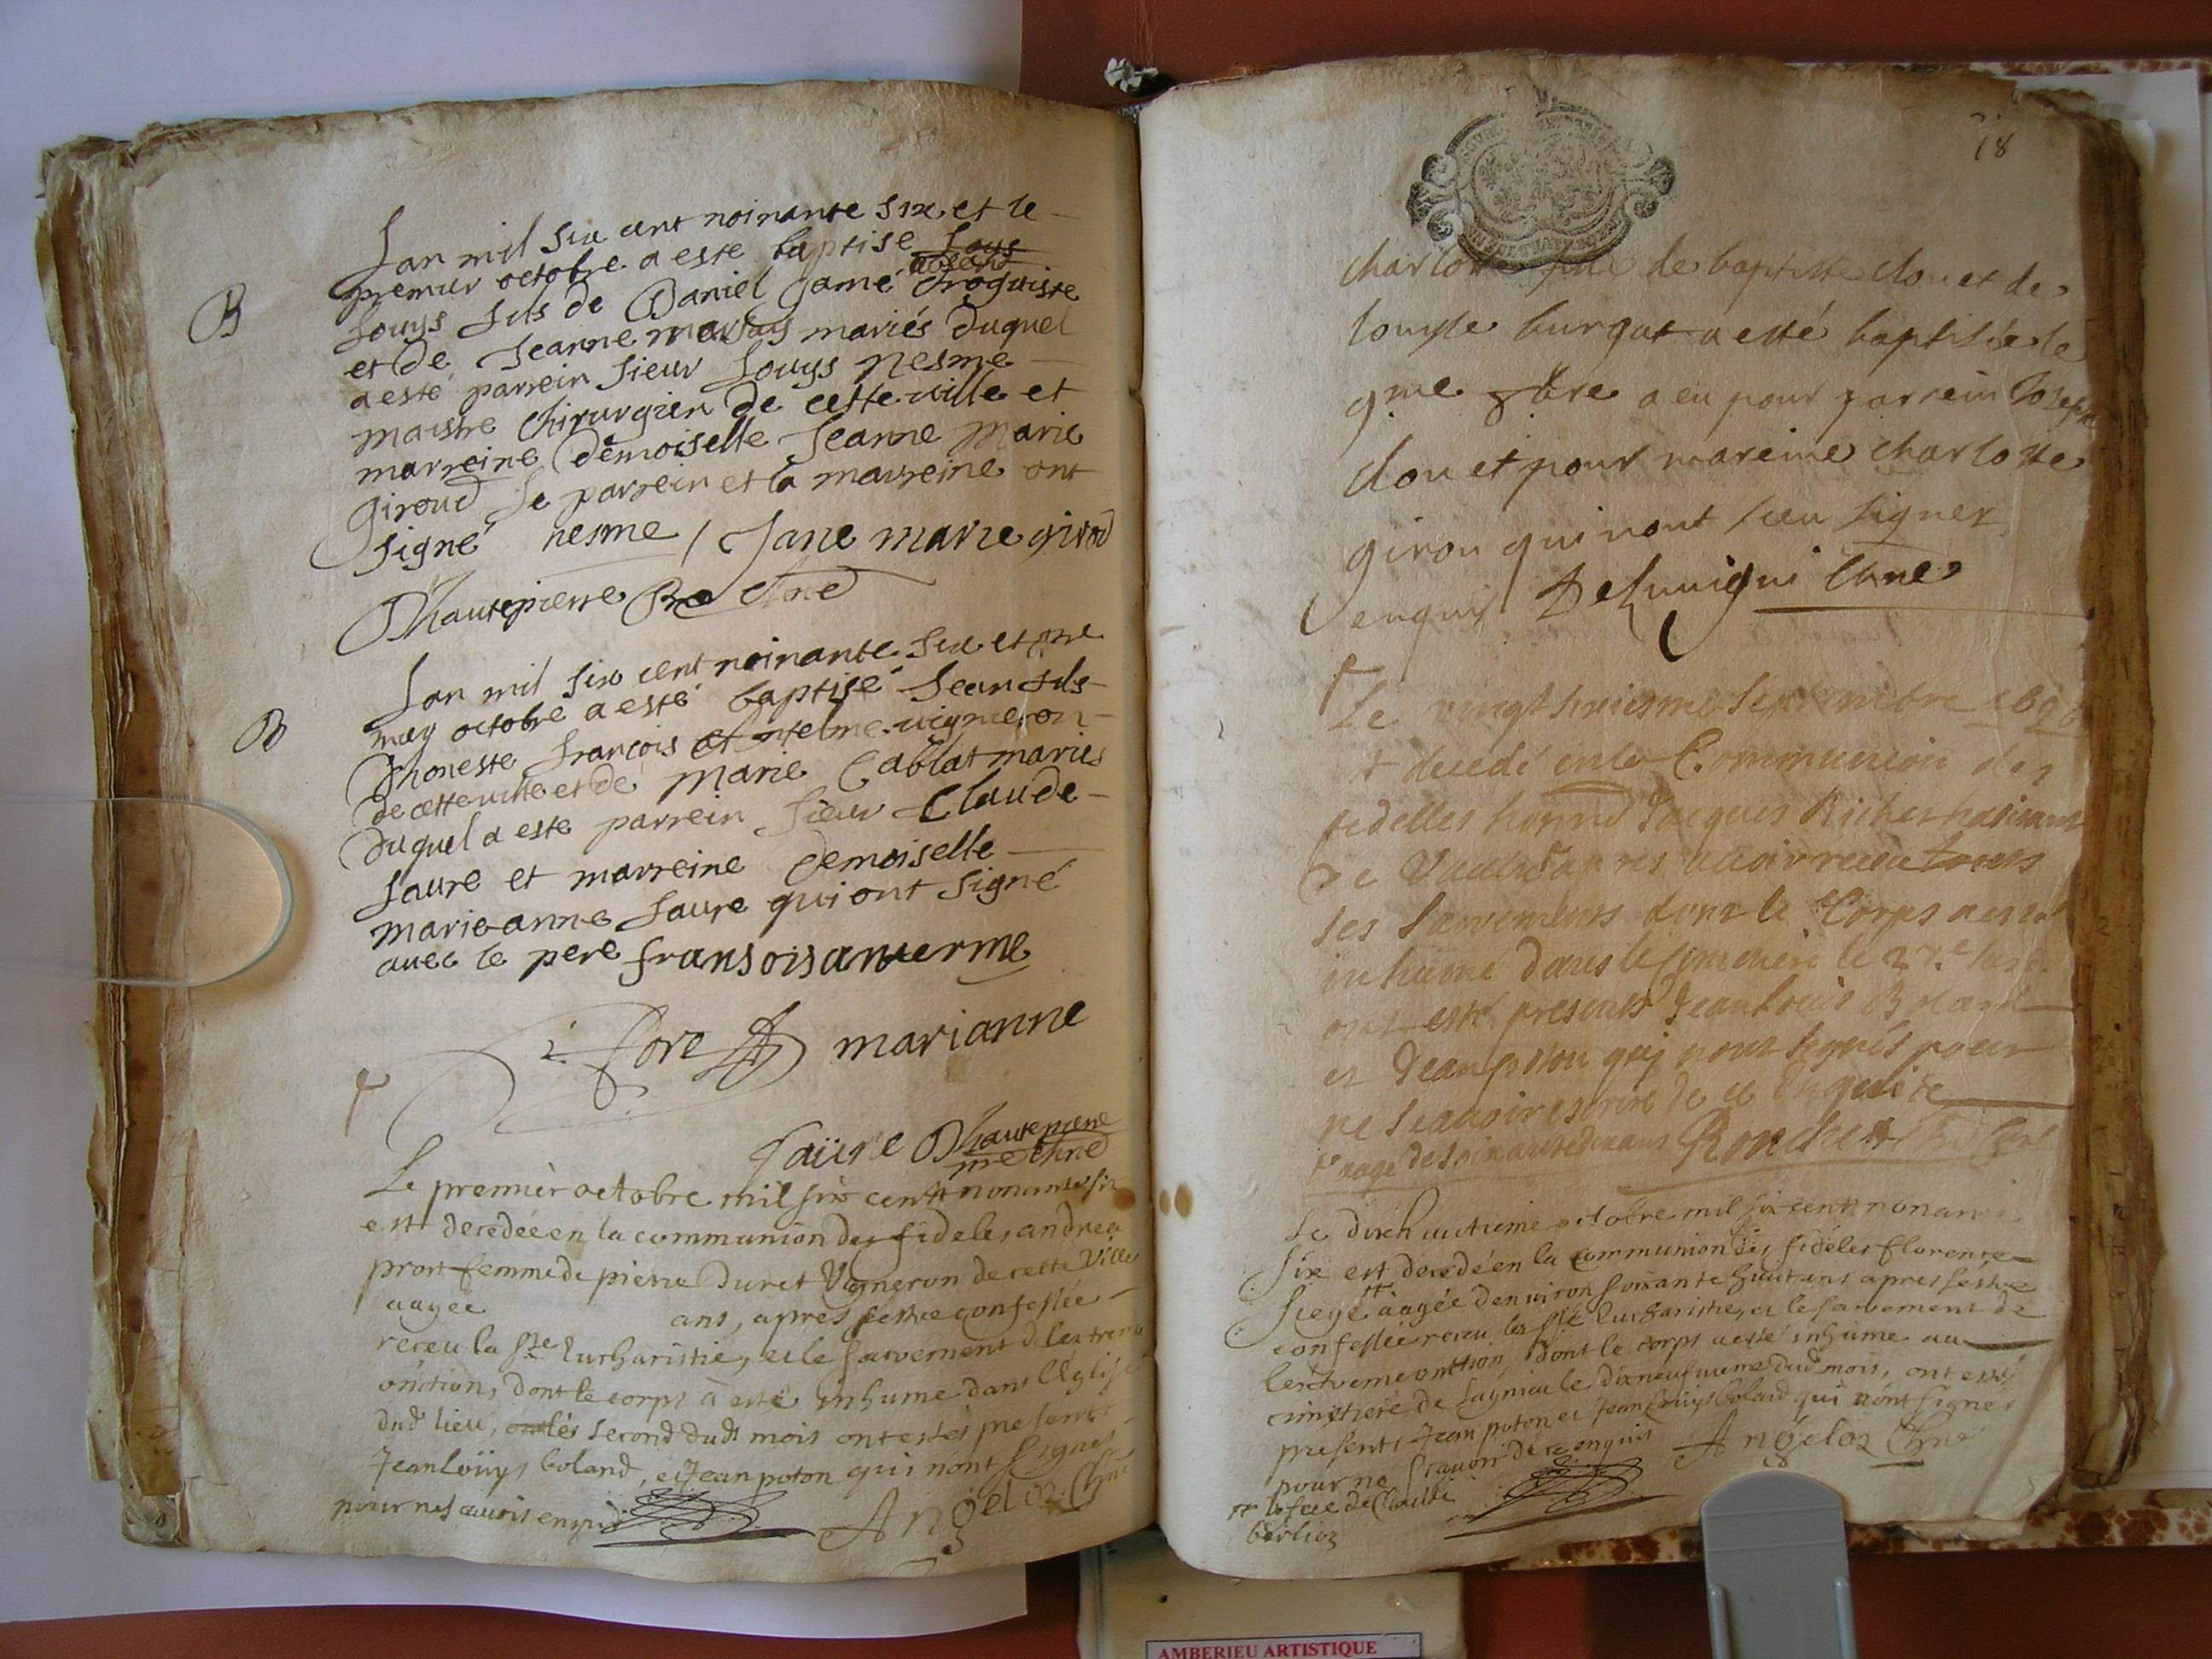 B
Lan mil six cent noinante six et le
premier octobre a esté baptisé Louys
Louys fils de Daniel Jamé droguiste
et de Jeanne mariés duquel
a esté parrein sieur Louys nesme
maistre chirurgien de cette ville et
marreine Demoiselle Jeanne Marie
Giroud Le parrein et la marreine ont
signé nesme / Jane marie girod
Dhautepierre
B
Lan mil six cent noinante six et
octobre a esté baptisé Jean fils
Dhoneste françois Antelme vigneron
de cette ville et de Marie Cablat mariés
Duquel a esté parrein sieur Claude
faure et marreine Demoiselle
marie anne faure qui ont signé
avec le pere fransois anterme
marianne
faure Dhautepierre
Le premier octobre mil six cent nonante six
est decedée en la communion des fideles andrea
pron femme de pierre Duret Vigneron de cette Ville
aagée ans, apres sestre confessée
receu la Ste Eucharistie, et le sacrement de lextreme
onction, dont le corps à esté inhume dans lEglise
dud lieu, le second dudt mois ont estés presents
Jean Loüys boland, et Jean poton qui nont signes
pour ne scavoir enquis Angeloz
18
charlotte fille de baptiste clou et de
louyse burgat a esté baptisée le
9me a eu pour parrein Joseph
clou et pour mareine charlotte
girou qui nont sceu signer
enquis
Le vingt septembre 1696
est decedé en la Communion des
fidelles Jacques Richer
De apres avoir receu tous
ses sacrements dont le Corps a esté
inhumé dans le le 27e
ont esté presents Jean Louis Boland
et Jean poton qui nont signés pour
ne scavoir escrire de ce Enquis
Le dixhuitieme octobre mil six cent nonante
six est decedé en la communion des fidéles florence
siege aagée denviron soixante huit ans apres sestre
confessée receu la Ste Eucharistie, et le sacrement de
lextreme onction, dont le corps a esté inhume au
cimetiere de Lagnieu le dixneufvieme dud mois, ont estés
presents Jean poton et Jean Louys boland qui nont signes
pour ne scavoir de ce enquis Angeloz
berlioz
AMBERIEU ARTISTIQUE